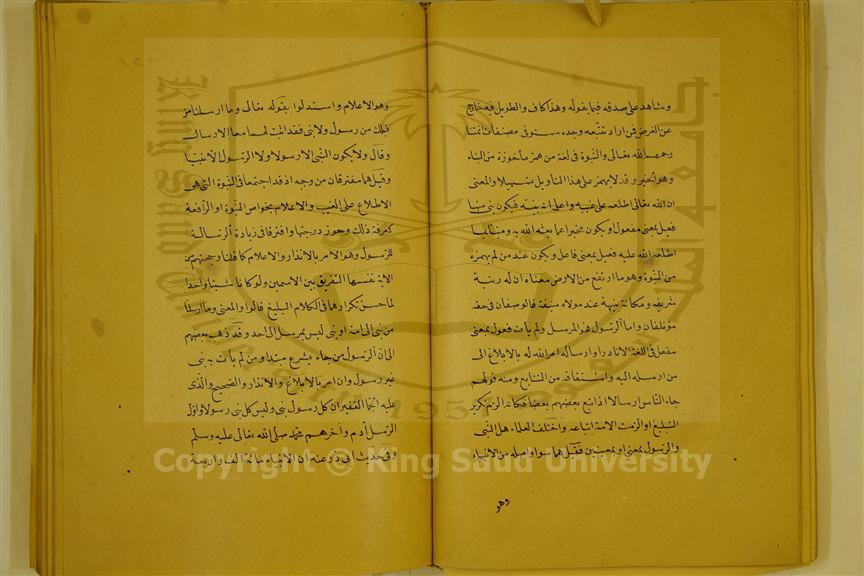 وشاهد على صدقه فيما يقوله وهذا كاف والطويل فيه خارج
عن الغرض فمن اراد تتبعه وجده مستوفى فى مصنفات ائمتنا
رحمهم الله تعالى والنبوة فى لغة من همز مأخوذة من النباء
وهو الخبر وقد لا يهمز على هذا التاويل تسهيلا والمعنى
ان الله تعالى اطلعه على غيبه واعلمه انه نبيه فيكون نبى منبا
فعيل بمعنى مفعول او يكون مخبرا عما بعثه الله به ومنبئا بما
اطلعه الله عليه فعيل بمعنى فاعل ويكون عند من لم يهمزه
من النبوة وهو ما ارتفع من الارض معناه ان له رتبة
شريفه ومكانة نبيهة عند مولاه منيفة فالوصفان فى حقه
مؤتلفان واما الرسول فهو المرسل ولم يأت فعول بمعنى
مفعل فى اللغة الا نادرا وارساله امر الله له بالابلاغ الى
من ارسله اليه واشتقاقه من التتابع ومنه قولهم
جاء الناس ارسالا اذا تبع بعضهم بعضا فكانه الزم تكرير
التبليغ او الزمت الامة اتباعه واختلف العلماء هل النبى
والرسول بمعنى او بمعنيين فقيل هما سواء واصله من الانباء
وهو
وهو الاعلام واستدلوا بقوله تعالى وما ارسلنا من
قبلك من رسول ولا نبى فقد اثبت لهما معا الارسال
وقال ولا يكون النبى الا رسولا ولا الرسول الا نبيا
وقيل هما مفترقان من وجه اذ قد اجتمعا فى النبوة التى هى
الاطلاع على الغيب والاعلام بخواص النبوة او الرفعة
لمعرفة ذلك وحوز درجتها وافترقا فى زيادة الرسالة
للرسول وهو الامر بالانذار والاعلام كما قلنا وحجتهم من
الاية نفسها التفريق بين الاسمين ولو كانا شيئا واحدا
لما حسن تكرارهما فى الكلام البليغ قالوا والمعنى وما ارسلنا
من نبى الى امة او نبى ليس بمرسل الى احد وقد ذهب بعضهم
الى ان الرسول من جاء بشرع مبتدا ومن لم يأت به نبى
غير رسول وان امر بالابلاغ والانذار والصحيح والذى
عليه الجما الغفير ان كل رسول نبى وليس كل نبى رسولا واول
الرسل آدم وآخرهم محمد صلى الله تعالى عليه وسلم
وفى حديث ابى ذر عنه ان الانبياء مائة الف واربعة
Copyright © King Saud University